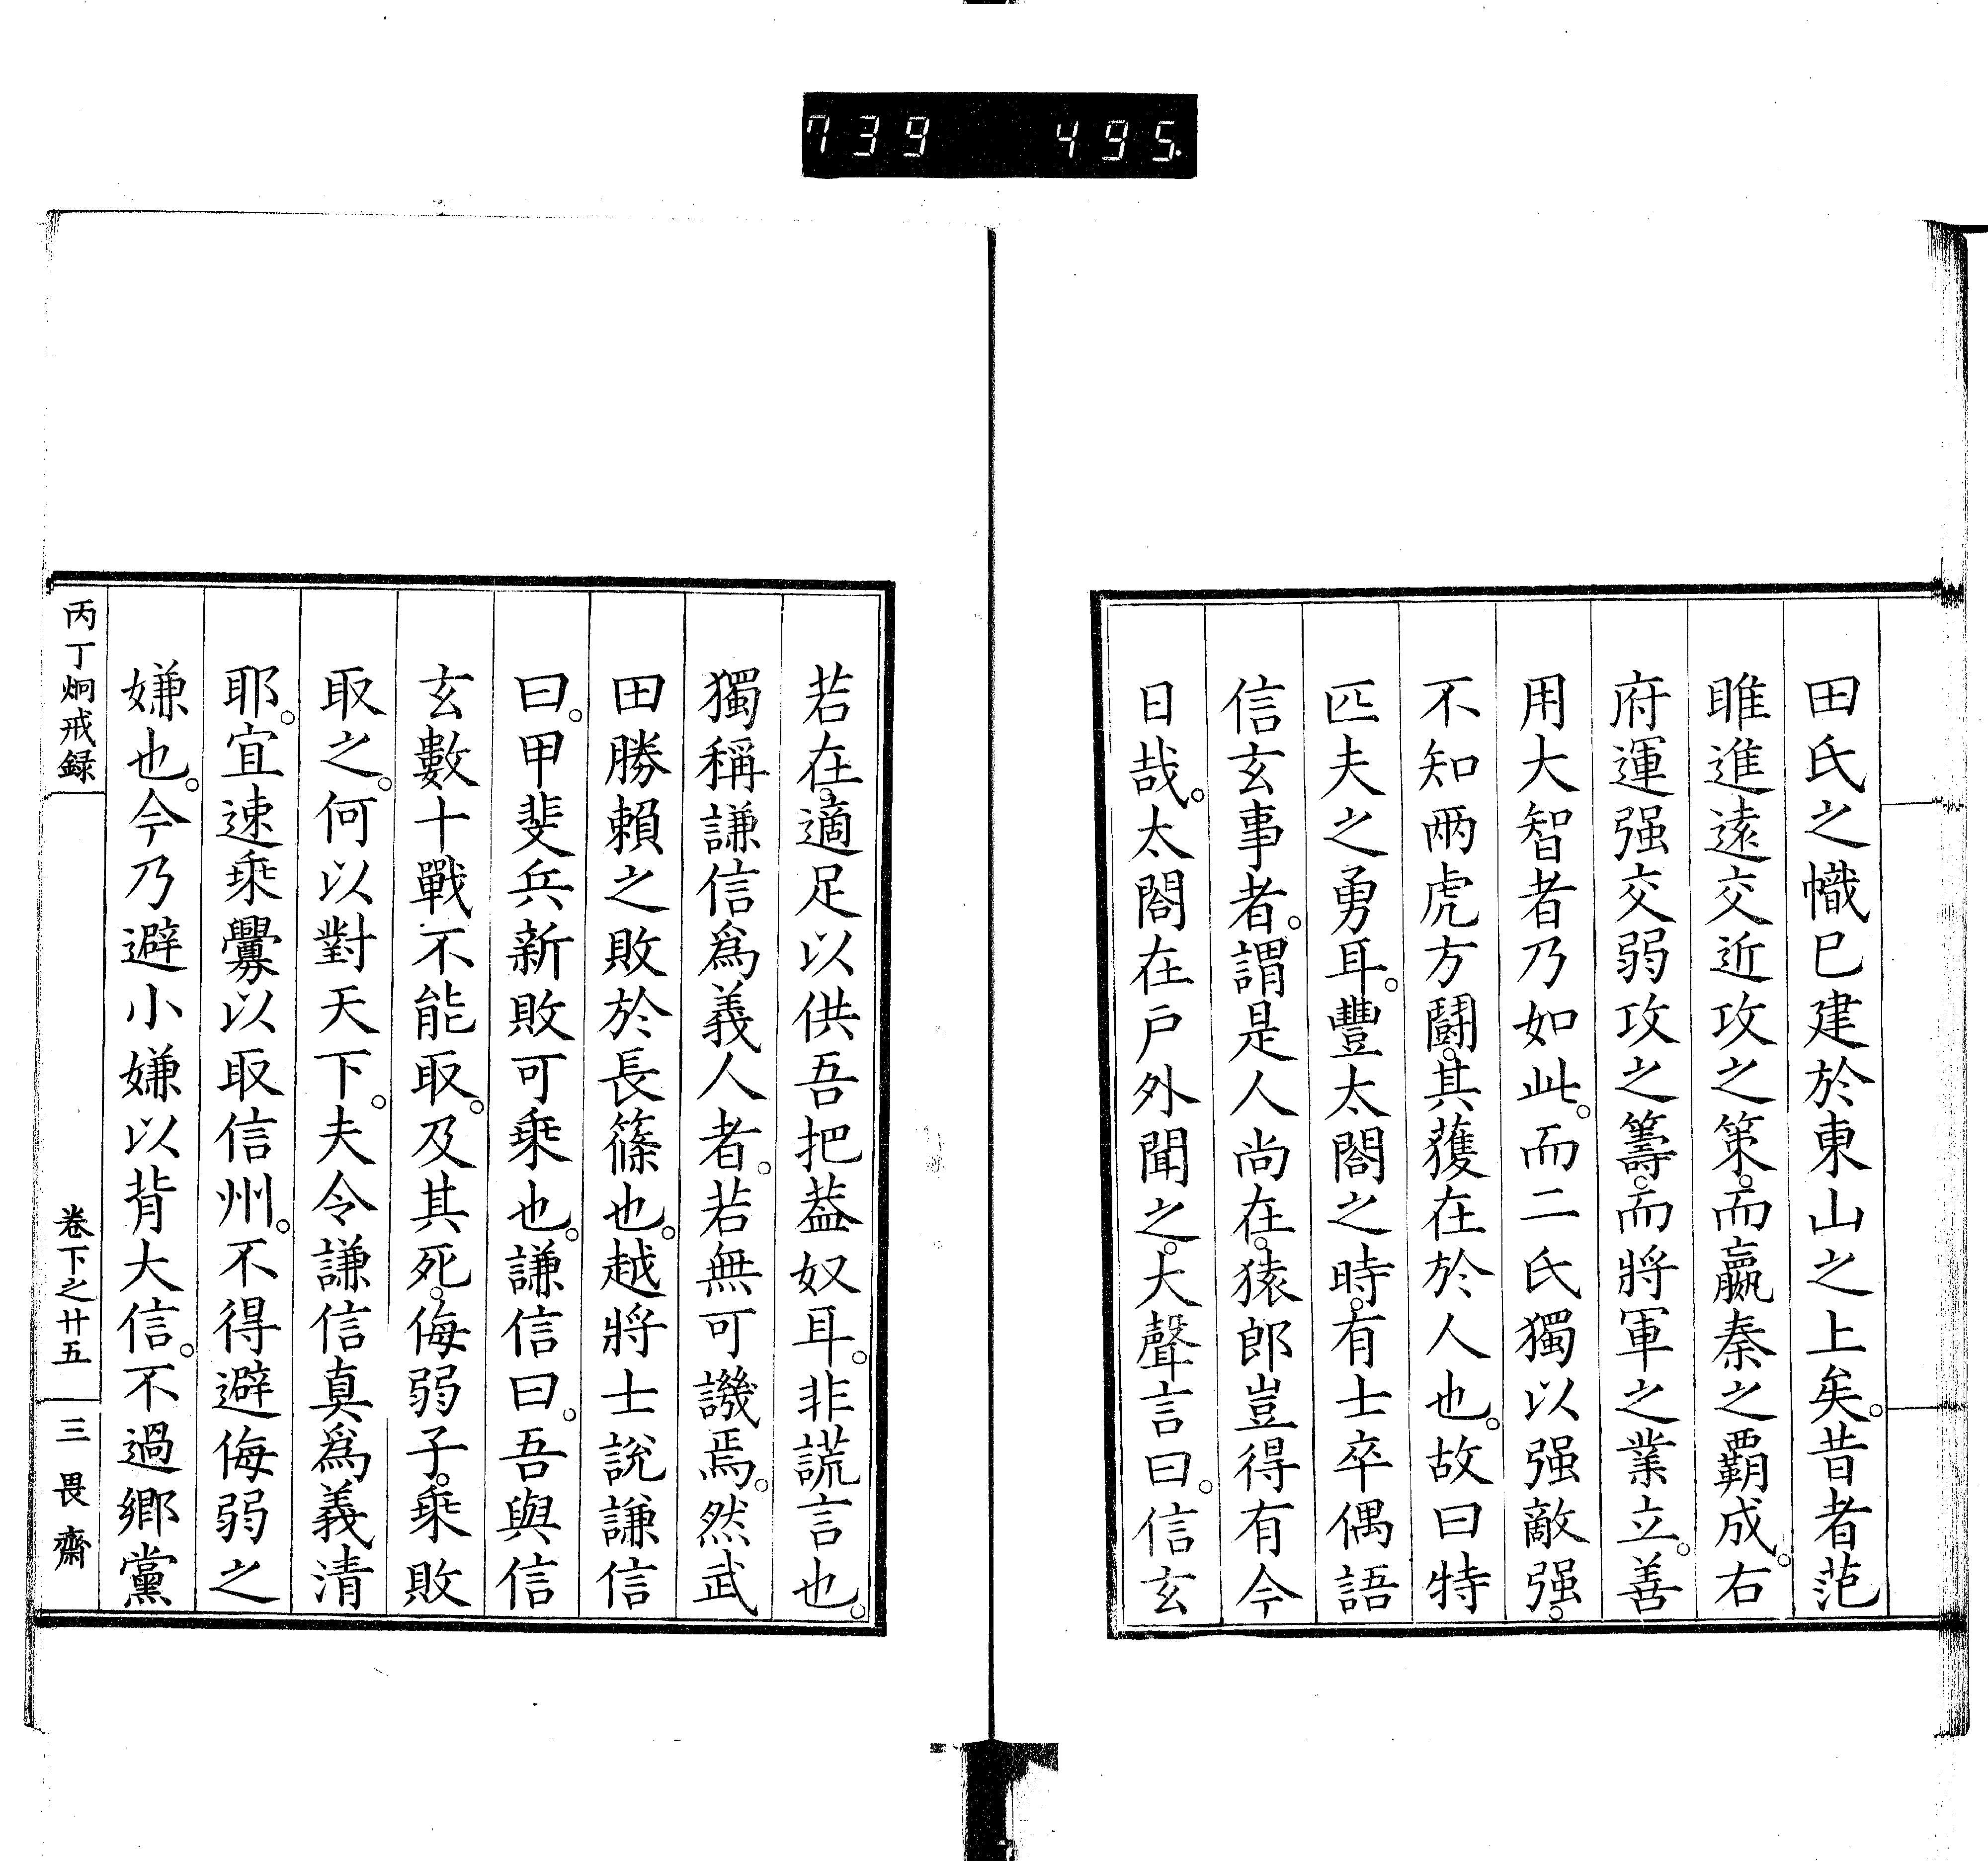 739 495.
田氏之幟已建於東山之上矣。昔者范
睢進遠交近攻之策。而嬴秦之覇成。右
府運强交弱攻之籌。而將軍之業立。善
用大智者乃如此。而二氏獨以强敵强。
不知兩虎方鬭。其獲在於人也。故曰特
匹夫之勇耳。豐太閤之時。有士卒偶語
信玄事者。謂是人尚在。猿郎豈得有今
日哉。太閤在戸外聞之。大聲言曰。信玄
若在。適足以供吾把葢奴耳。非謊言也。
獨稱謙信爲義人者。若無可譏焉。然武
田勝賴之敗於長篠也。越將士說謙信
曰。甲斐兵新敗可乘也。謙信曰。吾與信
玄數十戰不能取。及其死。侮弱子。乘敗
取之。何以對天下。夫令謙信真爲義清
耶。宜速乘釁以取信州。不得避侮弱之
嫌也。今乃避小嫌以背大信。不過鄉黨
丙丁炯戒録
卷下之廿五
三畏齋